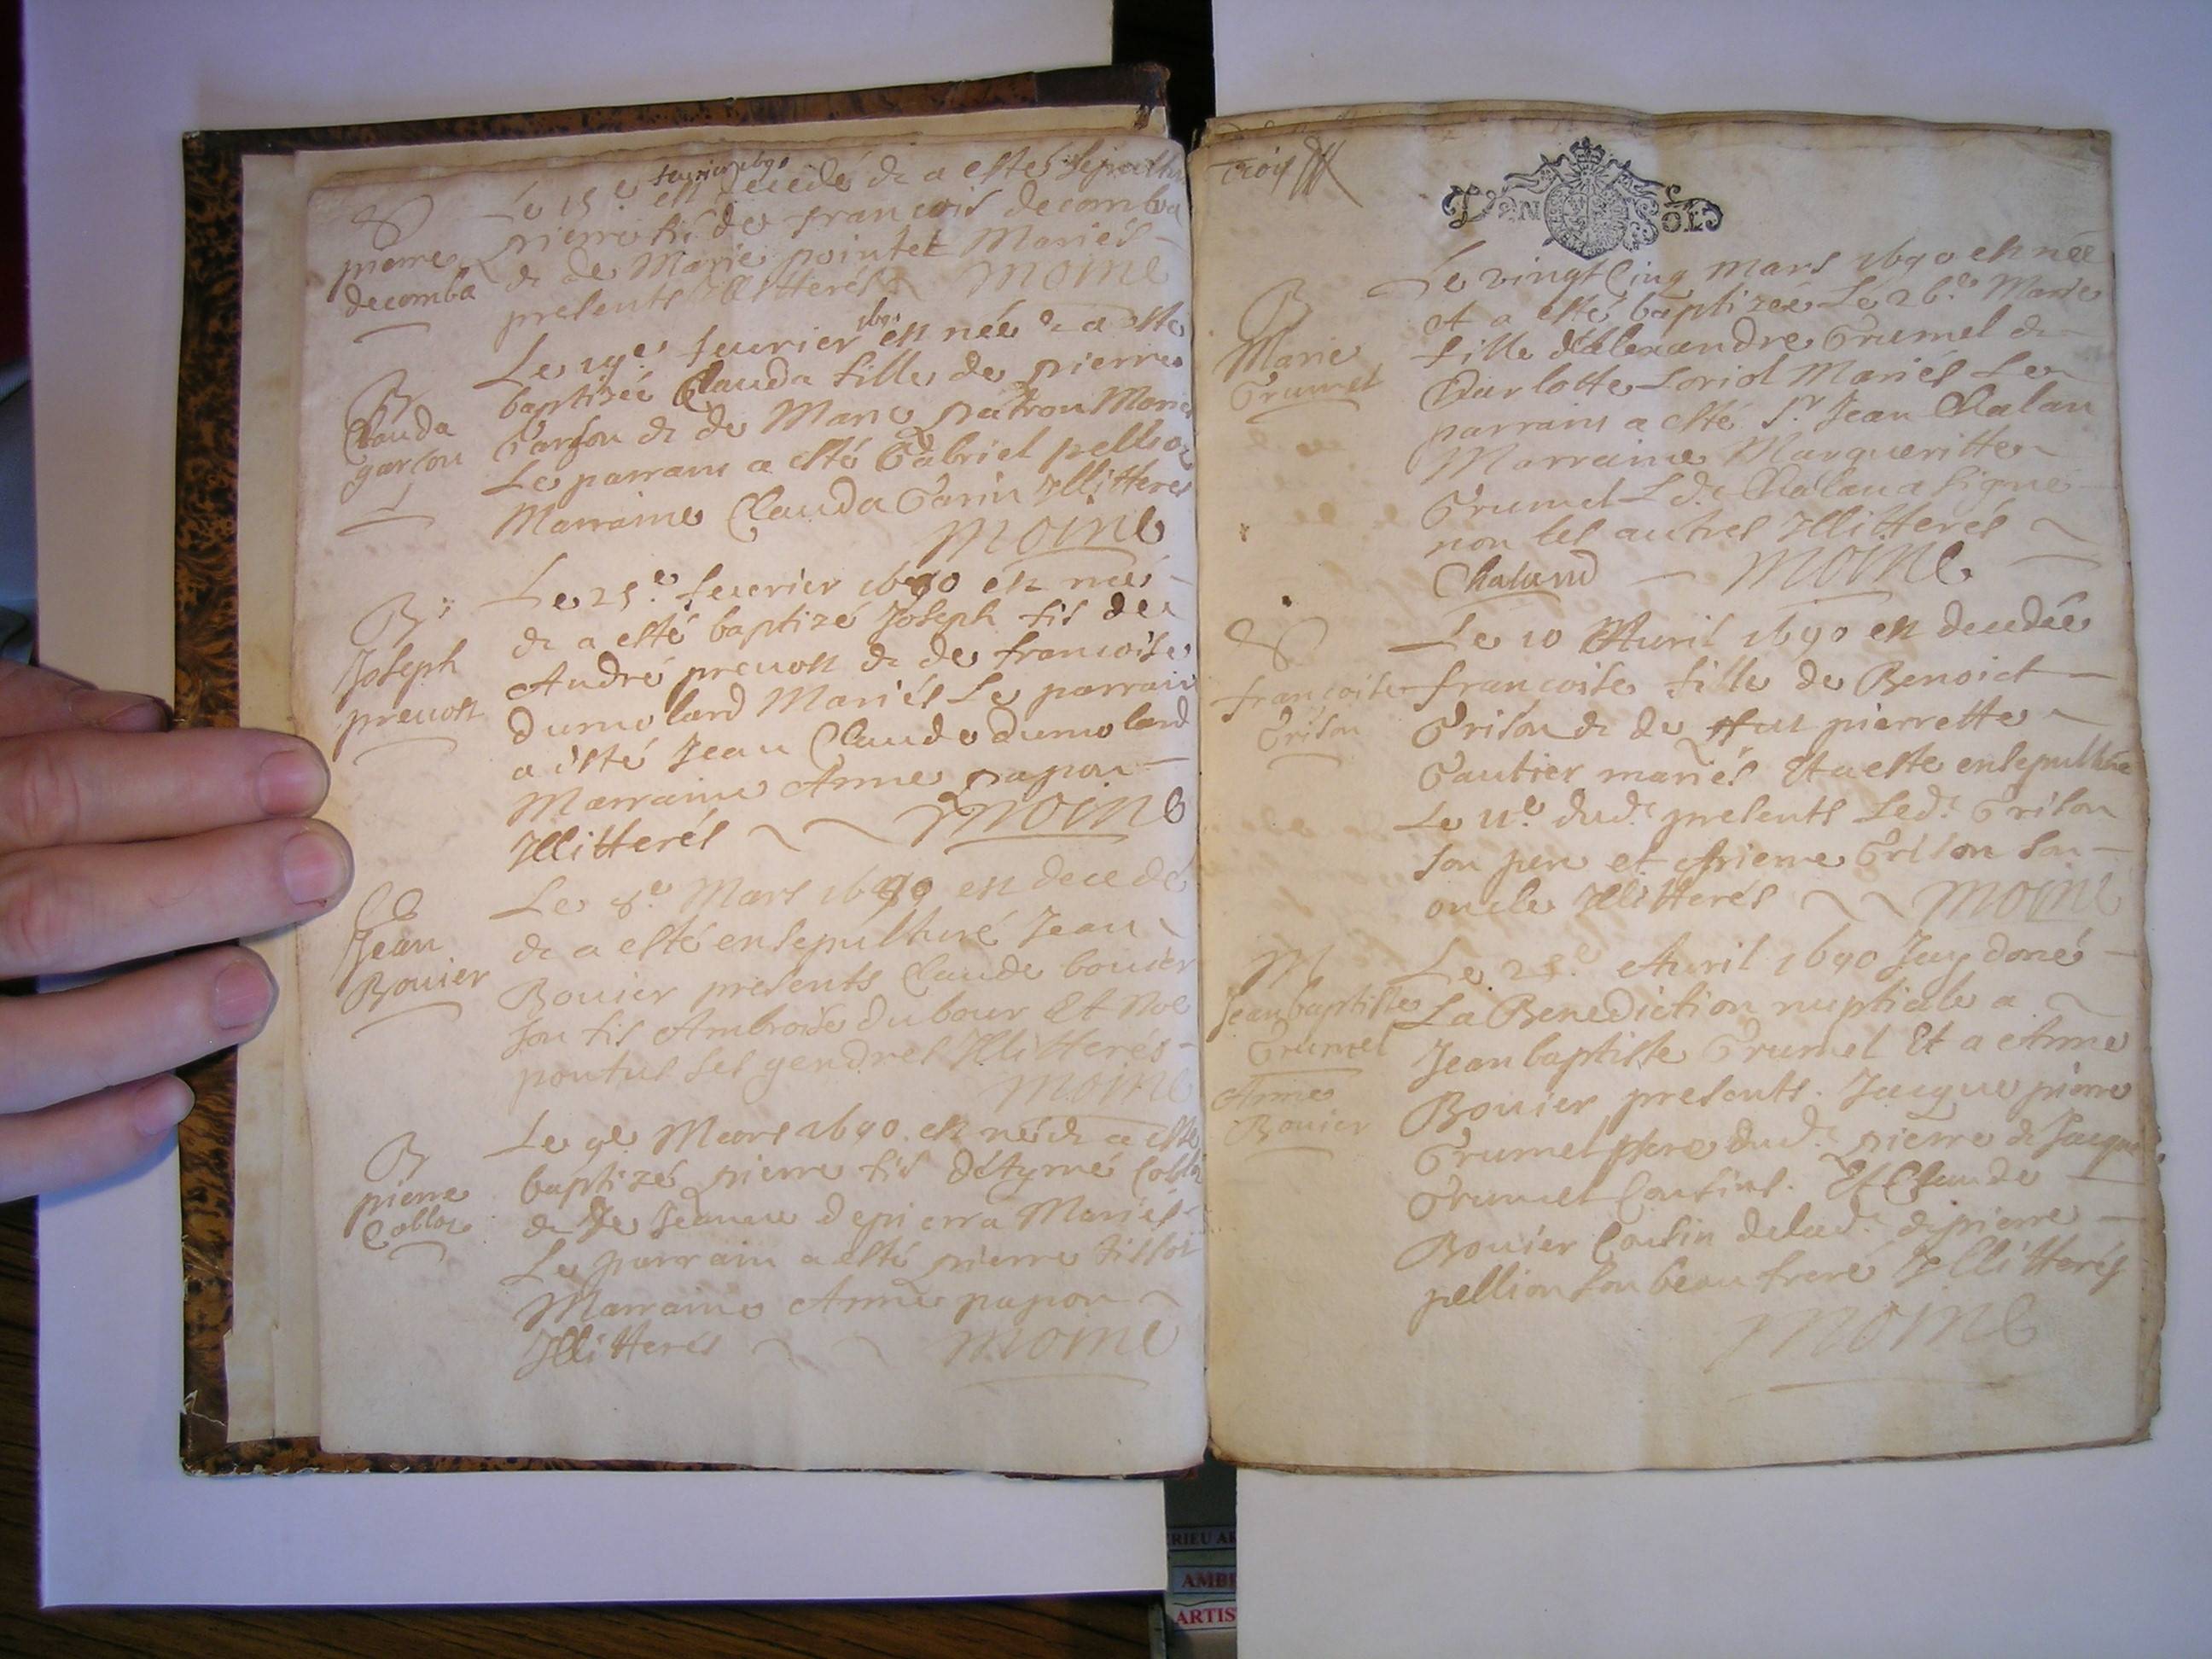 S
pierre
decomba
feurier 1690
Le 15.e est decedé & a esté sepulturé
pierre fis de françois decomba
& de Marie pointet Mariés
presents Illitterés Moine
B
Clauda
garson
Le 19.e feurier 1690 est née & a esté
baptisée Clauda fille de pierre
Garson & de Marie patron Mariés
Le parrain a esté Gabriel pellion
Marraine Clauda Garin Illitteres
Moine
B
Joseph
preuost
Le 25.e feurier 1690 est né
& a esté baptizé Joseph fis de
André preuost & de francoise
dumolard Mariés Le parrain
a esté Jean Claude dumolard
Marraine Anne papon
Illitterés Moine
S
Jean
Bouier
Le 8.e Mars 1690 est decedé
& a esté ensepulturé Jean
Bouier presents Claude bouier
son fis Ambroise dubour Et Noe
pontus ses gendres Illitterés
Moine
B
pierre
Collos
Le 9e Mars 1690. est né & a esté
baptizé pierre fis d'étyené
& de Jeanne depierra Mariés
Le parrain a esté pierre tissot
Marraine Anne papon
Illitterés Moine
Trois
DEN SOL
B
Marie
Grumel
Le vingt Cinq Mars 1690 est née
et a esté baptizée Le 26.e Marie
fille d'Alexandre Grumel &
Charlotte Loriol Mariés Le
parrain a esté Sr Jean Chalan
Marraine Margueritte
Grumel Led. Chalan a signé
non les autres Illitterés
Chaland Moine
S
francoise
Grison
Le 10 Auril 1690 est decedée
francoise fille de Benoict
Grison & de feu pierrette
Gautier mariés Et a esté ensepulturée
Le 11.e dud. presents Led. Grison
son pere et pierre Grison son
oncle Illitterés Moine
M
Jean baptiste
Grumel
Anne
Bouier
Le 25.e Auril 1690 Jay doné
La Benediction nuptiale a
Jean baptiste Grumel Et a Anne
Bouier presents. Jacque pierre
Grumel frere dud. pierre & Jacque
Grumel Cousins. Et Claude
Bouier Cousin delad. & pierre
pellion son beau frere Illitterés
Moine
AMB
ARTIS